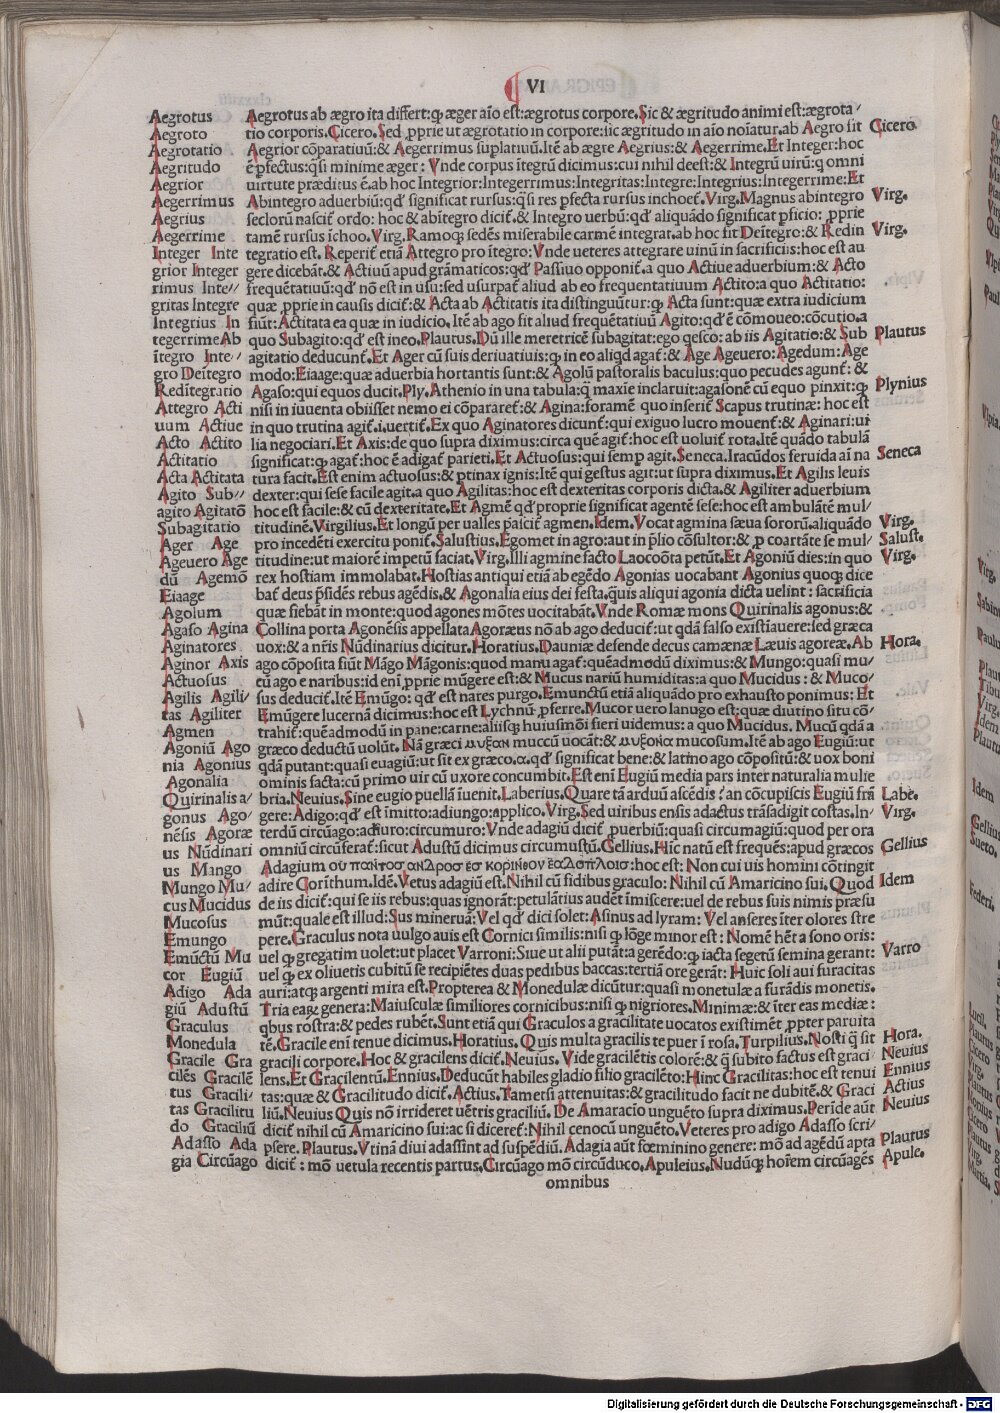 VI
Aegrotus
Aegroto
Aegrotatio
Aegritudo
Aegrior
Aegerrimus
Aegrius
Aegerrime
Integer Inte
grior Integer
rimus Inte//
gritas Integre
Integrius In
tegerrime Ab
ītegro Inte//
gro Deītegro
Redītegrario
Attegro Acti
uum Actiue
Acto Actito
Actitatio
Acta Actitata
Agito Sub//
agito Agitatō
Subagitatio
Ager Age
Ageuero Age
dū Agemō
Eiaage
Agolum
Agaso Agina
Aginatores
Aginor Axis
Actuosus
Agilis Agili/
tas Agiliter
Agmen
Agoniū Ago
nia Agonius
Agonalia
Quirinalis a/
gonus Ago/
nēsis Agoræ
us Nūdinari
us Mango
Mungo Mu/
cus Mucidus
Mucosus
Emungo
Emūctū Mu
cor Eugiū
Adigo Ada
giū Adustū
Graculus
Monedula
Gracile Gra
cilēs Gracilē
tus Gracili/
tas Gracilitu
do Graciliū
Adasso Ada
gia Circūago
Aegrotus ab ægro ita differt: ꝙ æger aīo est: ægrotus corpore. Sic & ægritudo animi est: ægrota/
tio corporis. Cicero. Sed ꝓprie ut ægrotatio in corpore: sic ægritudo in aīo noīatur. ab Aegro fit
Aegrior cōparatiuū: & Aegerrimus suplatiuū. Itē ab ægre Aegrius: & Aegerrime. Et Integer: hoc
ē ꝑfectus: qſi minime æger: Vnde corpus ītegrū dicimus: cui nihil deest: & Integrū uirū: q omni
uirtute præditus ē. ab hoc Integrior: Integerrimus: Integritas: Integre: Integrius: Integerrime: Et
Abintegro aduerbiū: qd' significat rursus: qſi res ꝑfecta rursus inchoet'. Virg. Magnus abintegro
seclorū nascit' ordo: hoc & abītegro dicit'. & Integro uerbū: qd' aliquādo significat ꝑficio: ꝓprie
tamē rursus īchoo. Virg. Ramoq; sedēs miserabile carmē integrat. ab hoc fit Deītegro: & Redin
tegratio est. Reperit' etiā Attegro pro ītegro: Vnde ueteres attegrare uinū in sacrificiis: hoc est au
gere dicebāt. & Actiuū apud grāmaticos: qd' Passiuo opponit'. a quo Actiue aduerbium: & Acto
frequētatiuū: qd' nō est in usu: sed usurpat' aliud ab eo frequentatiuum Actito: a quo Actitatio:
quæ ꝓprie in causis dicit': & Acta ab Actitatis ita distinguūtur: ꝙ Acta sunt: quæ extra iudicium
fiūt: Actitata ea quæ in iudicio. Itē ab ago fit aliud frequētatiuū Agito: qd' ē cōmoueo: cōcutio. a
quo Subagito: qd' est ineo. Plautus. Dū ille meretricē subagitat: ego q̄esco: ab iis Agitatio: & Sub
agitatio deducunt'. Et Ager cū suis deriuatiuis: ꝙ in eo aliqd agat': & Age Ageuero: Agedum: Age
modo: Eiaage: quæ aduerbia hortantis sunt: & Agolū pastoralis baculus: quo pecudes agunt': &
Agaso: qui equos ducit. Ply. Athenio in una tabula: q̄ maxīe inclaruit: agasonē cū equo pinxit: ꝙ
nisi in iuuenta obiisset nemo ei cōpararet': & Agina: foramē quo inserit' Scapus trutinæ: hoc est
in quo trutina agit'. i. uertit'. Ex quo Aginatores dicunt': qui exiguo lucro mouent': & Aginari: ui
lia negociari. Et Axis: de quo supra diximus: circa quē agit': hoc est uoluit' rota. Itē quādo tabulā
significat: ꝙ agat': hoc ē adigat' parieti. Et Actuosus: qui semꝑ agit. Seneca. Iracūdos feruida aī na
tura facit. Est enim actuosus: & ꝑtinax ignis: Itē qui gestus agit: ut supra diximus. Et Agilis leuis
dexter: qui sese facile agit. a quo Agilitas: hoc est dexteritas corporis dicta. & Agiliter aduerbium
hoc est facile: & cū dexteritate. Et Agmē qd' proprie significat agentē sese: hoc est ambulātē mul/
titudinē. Virgilius. Et longū per ualles pascit' agmen. Idem. Vocat agmina sæua sororū. aliquādo
pro incedēti exercitu ponit'. Salustius. Egomet in agro: aut in ꝓlio cōsultor: & ꝑ coartāte se mul/
titudine: ut maiorē impetū faciat. Virg. Illi agmine facto Laocoōta petūt. Et Agoniū dies: in quo
rex hostiam immolabat. Hostias antiqui etiā ab egēdo Agonias uocabant Agonius quoq; dice
bat' deus ꝑsidēs rebus agēdis. & Agonalia eius dei festa. quis aliqui agonia dicta uelint: sacrificia
quæ fiebāt in monte: quod agones mōtes uocitabāt. Vnde Romæ mons Quirinalis agonus: &
Collina porta Agonēsis appellata Agoræus nō ab ago deducit': ut qdā falso existīauere: sed græca
uox: & a nr̄is Nūdinarius dicitur. Horatius. Dauniæ defende decus camænæ Læuis agoreæ. Ab
ago cōposita fiūt Māgo Māgonis: quod manu agat': quēadmodū diximus: & Mungo: quasi mu/
cū ago e naribus: id enī ꝓprie mūgere est: & Mucus nariū humiditas: a quo Mucidus: & Muco/
sus deducit'. Itē Emūgo: qd' est nares purgo. Emunctū etiā aliquādo pro exhausto ponimus: Et
Emūgere lucernā dicimus: hoc est Lychnū ꝓferre. Mucor uero lanugo est: quæ diutino situ cō/
trahit': quēadmodū in pane: carne: aliisq; huiusmōi fieri uidemus: a quo Mucidus. Mucū qdā a
græco deductū uolūt. Nā græci μυξαν muccū uocāt: & μυξονια mucosum. Itē ab ago Eugiū: ut
qdā putant: quasi euagiū: ut sit ex græco. α. qd' significat bene: & latino ago cōpositū: & uox boni
ominis facta: cū primo uir cū uxore concumbit. Est enī Eugiū media pars inter naturalia mulie
bria. Neuius. Sine eugio puellā īuenit. Laberius. Quare tā arduū ascēdis? an cōcupiscis Eugiū frā
gere: Adigo: qd' est īmitto: adiungo: applico. Virg. Sed uiribus ensis adactus trāsadigit costas. In/
terdū circūago: adiuro: circumuro: Vnde adagiū dicit' ꝓuerbiū: quasi circumagiū: quod per ora
omniū circūferat': sicut Adustū dicimus circumustū. Gellius. Hic natū est frequēs: apud græcos
Adagium ου παντοσ ανδροσ εσ κορινθον εαδσπλοισ: hoc est: Non cui uis homini cōtingit
adire Corīthum. Idē. Vetus adagiū est. Nihil cū fidibus graculo: Nihil cū Amaricino sui. Quod
de iis dicit': qui se iis rebus: quas ignorāt: petulātius audēt īmiscere: uel de rebus suis nimis præsu
mūt: quale est illud: Sus mineruā: Vel qd' dici solet: Asinus ad lyram: Vel anseres īter olores stre
pere. Graculus nota uulgo auis est Cornici similis: nisi ꝙ lōge minor est: Nomē hēt a sono oris:
uel ꝙ gregatim uolet: ut placet Varroni: Siue ut alii putāt: a gerēdo: ꝙ iacta segetū semina gerant:
uel ꝙ ex oliuetis cubitū se recipiētes duas pedibus baccas: tertiā ore gerāt: Huic soli aui furacitas
auri: atq; argenti mira est. Propterea & Monedulæ dicūtur: quasi monetulæ a furādis monetis.
Tria eaꝝ genera: Maiusculæ similiores cornicibus: nisi ꝙ nigriores. Minimæ: & īter eas mediæ:
qbus rostra: & pedes rubēt. Sunt etiā qui Graculos a gracilitate uocatos existimēt ꝓpter paruita
tē. Gracile enī tenue dicimus. Horatius. Quis multa gracilis te puer ī rosa. Turpilius. Nosti q̄ sit
gracili corpore. Hoc & gracilens dicit'. Neuius. Vide gracilētis colorē: & q̄ subito factus est graci/
lens. Et Gracilentū. Ennius. Deducūt habiles gladio filio gracilēto: Hinc Gracilitas: hoc est tenui
tas: quæ & Gracilitudo dicit'. Actius. Tametsi attenuitas: & gracilitudo facit ne dubitē. & Graci
liū. Neuius Quis nō irrideret uētris graciliū. De Amaracio unguēto supra diximus. Perīde aūt
dicit' nihil cū Amaricino sui: ac si diceret': Nihil cenocū unguēto. Veteres pro adigo Adasso scri/
psere. Plautus. Vtinā diui adassint ad suspēdiū. Adagia aūt fœminino genere: mō ad agēdū apta
dicit': mō uetula recentis partus. Circūago mō circūduco. Apuleius. Nudūq; hoīem circūagēs
omnibus
Cicero.
Virg.
Virg.
Plautus
Plynius
Seneca
Virg.
Salust.
Virg.
Hora.
Labe.
Virg.
Gellius
Idem
Varro
Hora.
Neuius
Ennius
Actius
Neuius
Plautus
Apule.
Digitalisierung gefördert durch die Deutsche Forschungsgemeinschaft - DFG